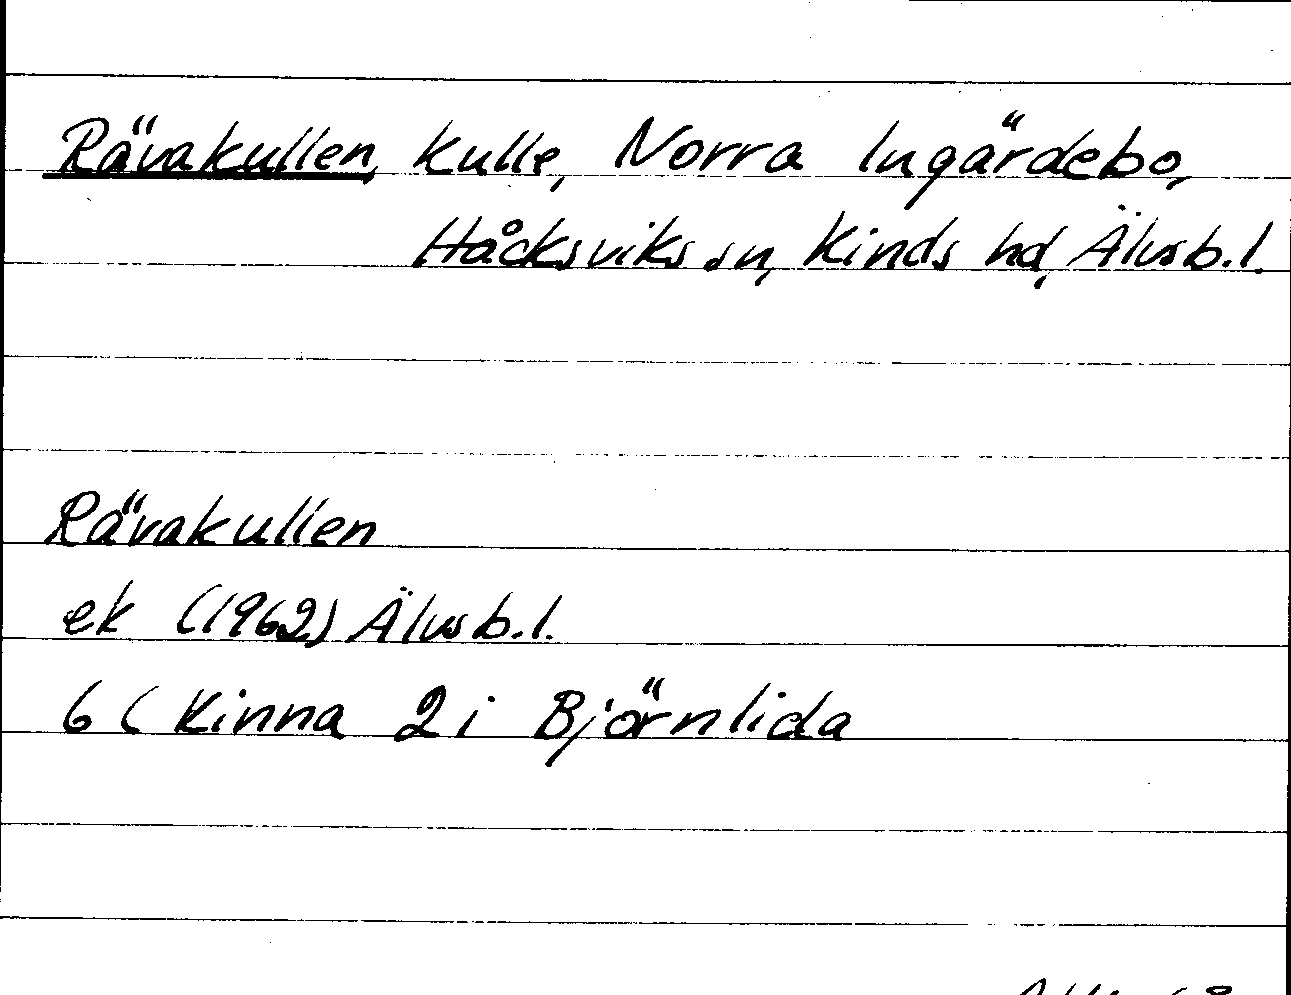 Rävakullen, kulle, Norra Ingärdebo,
Håcksviks sn, Kinds hd, Älvsb.l.
Rävakullen
ek (1962) Älvsb.l.
6C Kinna 2i Björnlida